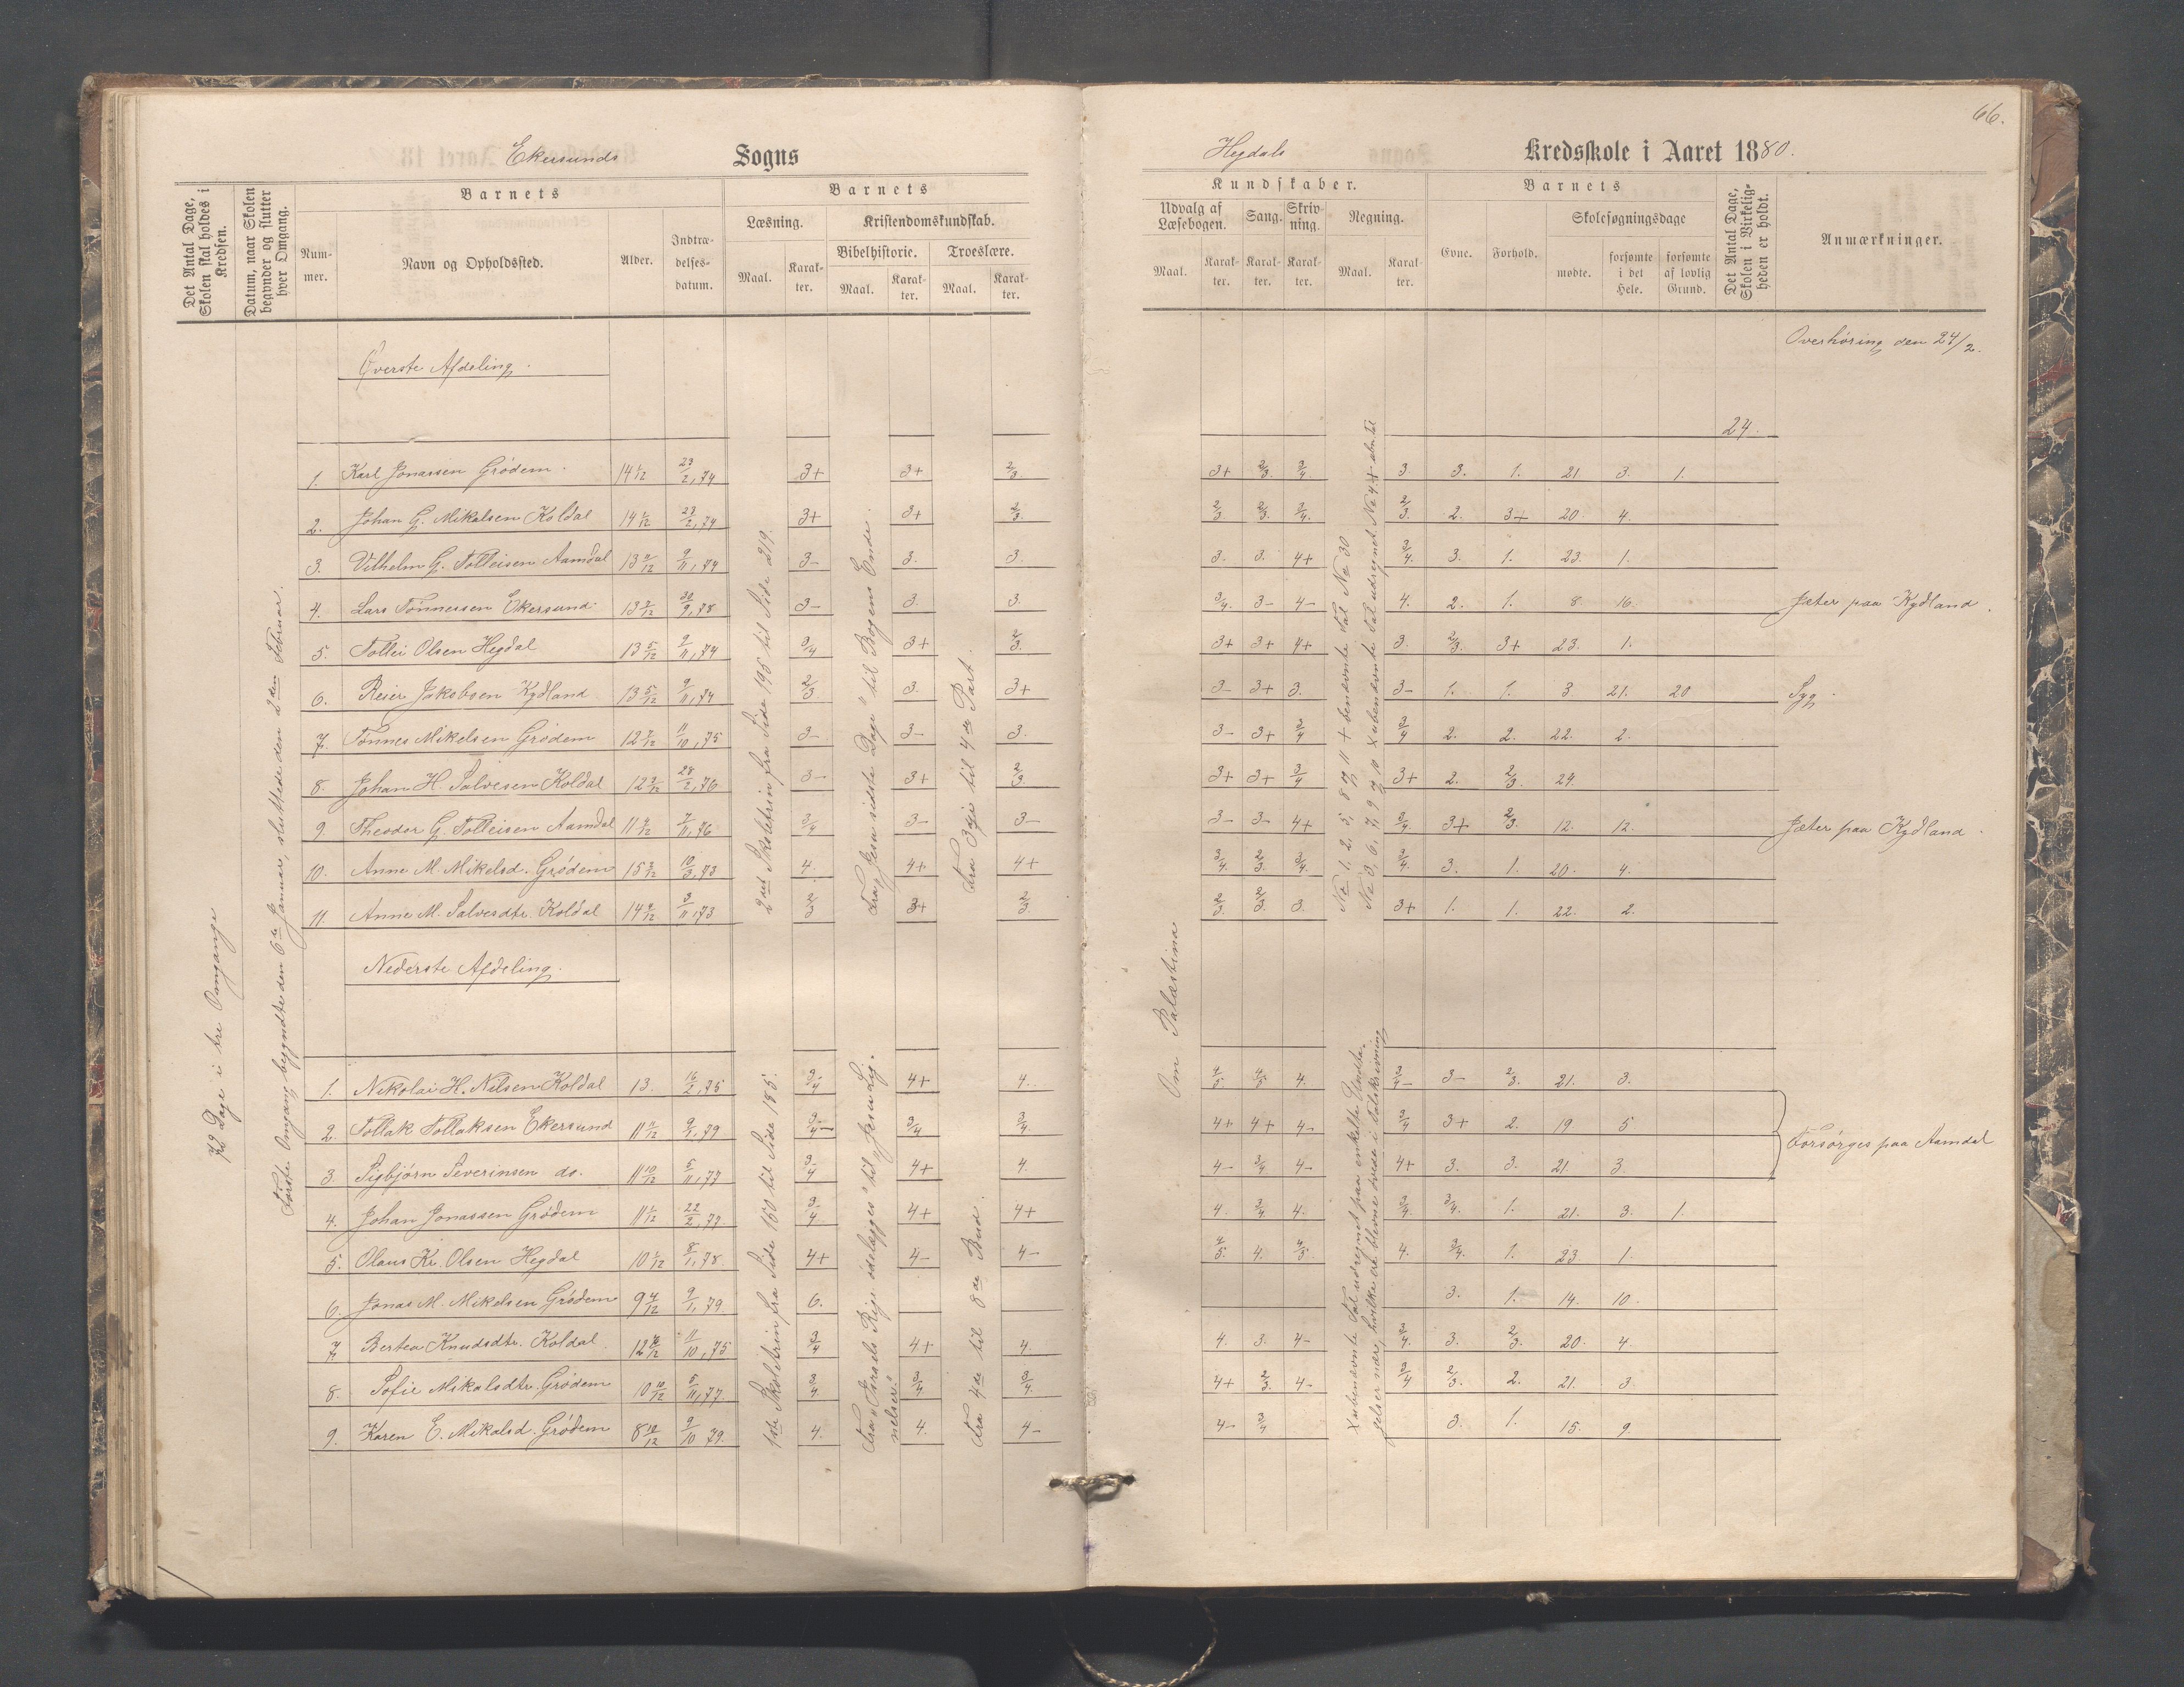 66.
Ekersunds Sogns
Hegdals Kredsskole i Aaret 1880.
Det Antal Dage, Skolen skal holdes i Kredsen.
Datum, naar Skolen begynder og slutter hver Omgang.
Barnets
Nummer.
Navn og Opholdssted.
Alder.
Indtrædelsesdatum.
Barnets
Læsning.
Maal.
Karakter.
Kristendomskundskab.
Bibelhistorie.
Maal.
Karakter.
Troeslære.
Maal.
Karakter.
Kundskaber.
Udvalg af Læsebogen.
Maal.
Karakter.
Sang.
Karakter.
Skrivning.
Karakter.
Regning.
Maal.
Karakter.
Barnets
Evne.
Forhold.
Skolesøgningsdage
mødte.
forsømte i det Hele.
forsømte af lovlig Grund.
Det Antal Dage, Skolen i Virkeligheden er holdt.
Anmærkninger.
72 Dage i tre Omgange
Første Omgang begyndte den 6te Januar, sluttede den 2den Februar.
Overhøring den 24/2.
Øverste Afdeling.
24.
2det Skoletrin fra Side 195 til Side 219.
Fra "Jesu sidste Dage" til Bogens Ende.
Fra 3die til 4de Part.
Om Palæstina
1. Karl Jonassen Grødem. 14 1/12 23/2,74 3+ 3+ 2/3 3+ 2/3. 3/4. 3 3. 1. 21 3. 1.
2. Johan G. Mikalsen Koldal 14 1/12 23/2,74 3+ 3+ 2/3. 2/3. 2/3. 3/4. 2/3. 2. 3+ 20. 4.
3. Vilhelm G. Tolleisen Aamdal 13 9/12 9/11,74 3- 3. 3. 3. 3. 4+ 3/4. 3. 1. 23. 1.
4. Lars Tønnessen Ekersund. 13 3/12 30/9,78 3- 3. 3. 3/4. 3- 4- 4. 2. 1. 8. 16. Jæter paa Kydland.
5. Tollei Olsen Hegdal 13 5/12 9/11,74 3/4 3+ 2/3. 3+ 3+ 4+ 3. 2/3. 3+ 23. 1.
6. Reier Jakobsen Kydland 13 5/12 9/11,74 2/3. 3. 3+ 3- 3+ 3. 3- 1. 1. 3 21. 20 Syg.
7. Tønnes Mikelsen Grødem 12 7/12 11/10,75 3- 3- 3. 3- 3+ 3/4 3/4 2. 2. 22. 2.
8. Johan H. Salvesen Koldal 12 3/12 28/2,76. 3- 3+ 2/3. 3+ 3+ 3/4 3+ 2. 2/3. 24.
9. Theodor G. Tolleisen Aamdal 11 9/12 7/11,76 3/4 3- 3- 3- 3- 4+ 3/4. 3+ 2/3. 12. 12. Jæter paa Kydland.
10. Anne M. Mikelsd. Grødem 15 3/12 10/3,73 4. 4+ 4+ 3/4. 2/3. 3/4. 3/4. 3. 1. 20. 4.
11. Anne M. Salvesdtr. Koldal 14 9/12 3/11,73 2/3 3+ 2/3. 2/3. 2/3. 3. 3+ 1. 1. 22. 2.
Nederste Afdeling.
1ste Skoletrin fra Side 160 til Side 185.
Fra "Israels Rige ødelægges" til "Jesu Lignelser."
Fra 4de til 8de Bud.
1. Nikolai H. Nilsen Koldal 13. 16/2,75 3/4 4+ 4. 4/5. 4/5 4. 3/4- 3- 2/3. 21. 3.
2. Tollak Tollaksen Ekersund 11 11/12 9/1,79 3/4- 3/4 3/4 4+ 4+ 4- 3/4 3+ 2. 19 5
3. Sigbjørn Severinsen do. 11 10/12 5/11,77 3/4 4+ 4. 4- 3/4 4- 4+ 3. 3. 21. 3.
Forsørges paa Aamdal
4. Johan Jonassen Grødem 11 1/12 22/2,77. 3/4 4+ 4+ 4. 3/4. 4. 3/4. 3/4. 1. 21. 3. 1.
5. Olaus Kr. Olsen Hegdal 10 1/12 8/1,78. 4+ 4- 4- 4/5. 4. 4/5. 4. 3/4. 1. 23. 1.
6. Jonas M. Mikelsen Grødem 9 4/12 9/1,79. 6. 3. 1. 14. 10.
7. Bertea Knudsdtr. Koldal 12 10/12 11/10,75 3/4 4+ 4. 4. 3. 4- 3/4. 3. 2/3. 20. 4
8. Sofie Mikalsdtr. Grødem 10 10/12 5/11,77. 3/4 3/4 3/4. 4+ 2/3. 4- 3/4 2/3. 2. 21. 3.
9. Karen E. Mikalsd. Grødem 8 10/12 9/10 79. 4. 4. 4- 4- 3/4 3. 1. 15. 9.